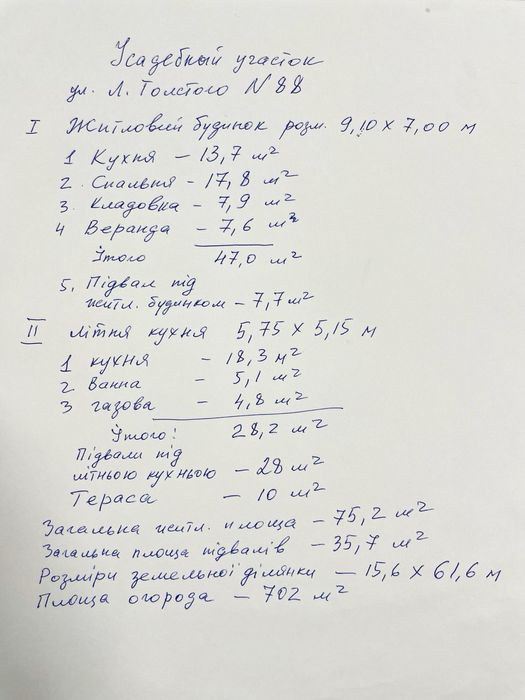 Усадебный участок
ул. Л. Толстого N 88
I Житловий будинок розм. 9,10 x 7,00 м
1 Кухня – 13,7 м²
2. Спальня – 17,8 м²
3. Кладовка – 7,9 м²
4 Веранда – 7,6 м²
Итого 47,0 м²
5. Підвал під
житл. будинком – 7,7 м²
II літня кухня 5,75 x 5,15 м
1 кухня – 18,3 м²
2 Ванна – 5,1 м²
3 газова – 4,8 м²
Итого: 28,2 м²
Підвали під
літньою кухньою – 28 м²
Тераса – 10 м²
Загальна житл. площа – 75,2 м²
Загальна площа підвалів – 35,7 м²
Розміри земельної ділянки – 15,6 x 61,6 м
Площа огорода – 702 м²